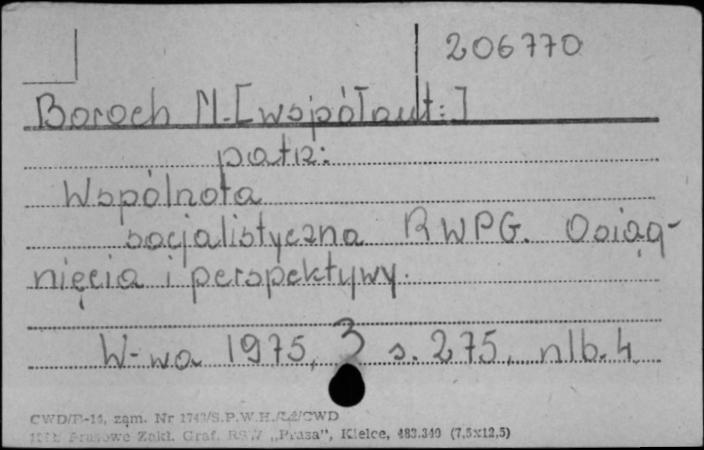 206770
Boroch M. [współaut:]
patrz:
Wspólnota
socjalistyczna RWPG. Osiąg-
nięcia i perspektywy.
W-wa 1975, 3 s. 275, nlb. 4
CWD/E-14, zam. Nr
Zakł. Graf. RSW „Prasa”, Kielce, 483.340 (7,5x12,5)